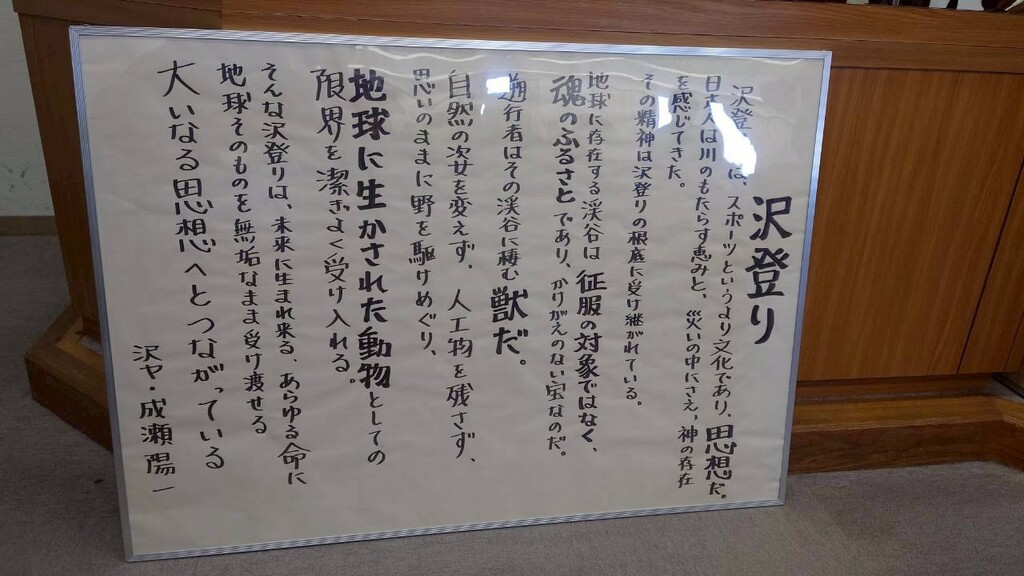 沢登り
沢登は、スポーツというより文化であり、思想だ。
日本人は川のもたらす恵みと、災いの中にさえ、神の存在
を感じてきた。
その精神は沢登りの根底に受け継がれている。
地球に存在する渓谷は征服の対象ではなく、
魂のふるさとであり、かけがえのない宝なのだ。
遡行者はその渓谷に棲む獣だ。
自然の姿を変えず、人工物を残さず、
思いのままに野を駆けめぐり、
地球に生かされた動物としての
限界を潔ぎよく受け入れる。
そんな沢登りは、未来に生まれ来る、あらゆる命に
地球そのものを無垢なまま受け渡せる
大いなる思想へとつながっている
沢ヤ・成瀬陽一